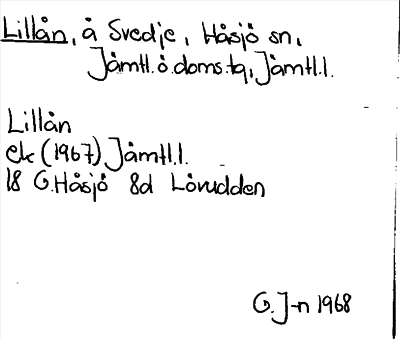 Lillån, å Svedje, Håsjö sn,
Jämtl.ö.doms.tg, Jämtl.l.
Lillån
ek (1967) Jämtl.l.
18 G.Håsjö 8d Lövudden
G. J-n 1968